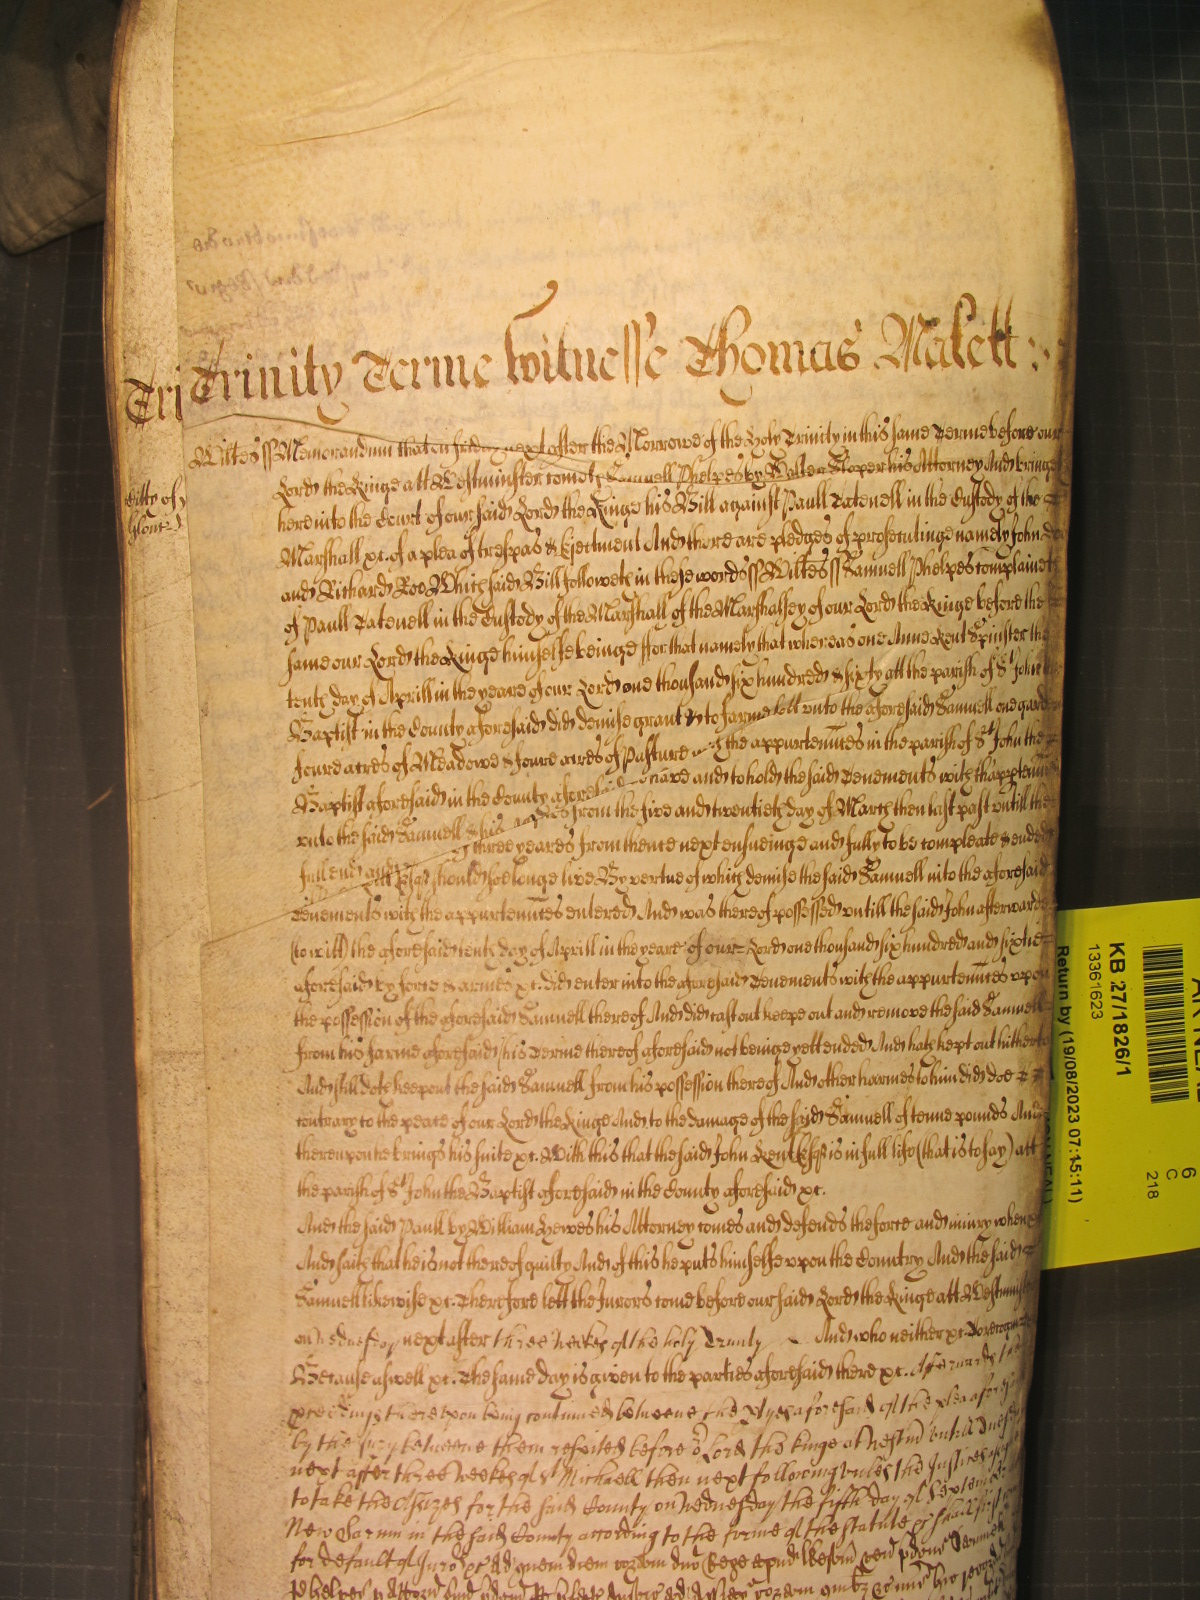 Trinity Terme Witnesse Thomas Malett :
Tri
Citty of
Glouc
Wiltes ss Memorandum that on friday next after the Morrowe of the Holy Trinity in this same Terme before our
Lord the Kinge att Westminster cometh Samuell Phelpes by Walter Sloper his Attorney And bringes
here into the Court of our said Lord the Kinge his Bill against Paull Tatenell in the Custody of the
Marshall xc. of a plea of trespas & Ejectment And there are pledges of prosecutinge namely John
and Richard Roe Which said Bill followeth in these words ss Wiltes ss Samuell Phelpes complaineth
of Paull Tatenell in the Custody of the Marshall of the Marshalsey of our Lord the Kinge before the
same our Lord the Kinge himselfe beinge ffor that namely that whereas one Anne Kent Spinster the
tenth day of Aprill in the yeare of our Lord one thousand six hundred & sixty att the parish of St John
Baptist in the County aforesaid did demise grant & to farme lett unto the aforesaid Samuell one
foure acres of Meadowe & foure acres of Pasture the appurtennces in the parish of St John the
Baptist aforesaid in the County aforesaid have and to hold the said Tenements with thappurtennces
unto the said Samuell & his from the five and twentieth day of March then last past untill the
full end and three yeares from thence next ensueinge and fully to be compleate & ended
Esqr should soe longe live By vertue of which demise the said Samuell into the aforesaid
Tenements with the appurtennces entered And was thereof possessed untill the said John afterwards
(to witt) the aforesaid tenth day of Aprill in the yeare of our Lord one thousand six hundred and sixtie
aforesaid by force & armes xc. did enter into the aforesaid Tenements with the appurtennces upon
the possession of the aforesaid Samuell thereof And did cast out keepe out and remove the said Samuell
from his farme aforesaid his Terme thereof aforesaid not beinge yett ended And hath kept out hitherto
And still doth keepe out the said Samuell from his possession thereof And other harmes to him did doe
contrary to the peace of our Lord the Kinge And to the damage of the said Samuell of tenne pounds And
thereupon he brings his suite xc. With this that the said John Kent Esqr is in full life (that is to say) att
the parish of St John the Baptist aforesaid in the County aforesaid xc.
And the said Paull by William Hewes his Attorney comes and defends the force and iniury when
And saith that he is not thereof guilty And of this he puts himselfe upon the Country And the said
Samuell likewise xc. Therefore lett the Jurors come before our said Lord the Kinge att Westminster
on Wednesday next after three weekes of the holy Trinity And who neither xc. To recognize
Because aswell xc. The same day is given to the parties aforesaid there xc. Afterwards the
thereupon being continued betweene the ptyes aforesaid of the plea aforesaid
by the Jury betweene them respited before or Lord the kinge at Westm untill
next after three weekes of St Michaell then next following unles the Justices
to take the Assizes for the said County on Wednesday the fifth day of September
New Sarum in the said County according to the forme of the statute xc shall first
for default of Juro xc Ad quem diem coram dno Rege apud Westm
KB 27/1826/1
13361623
Return by (19/08/2023 07:15:11)
6
C
218